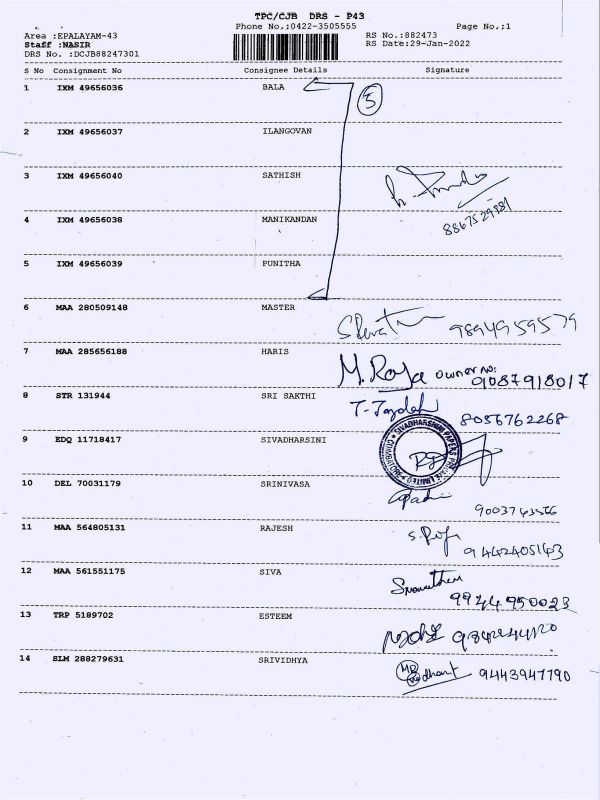 TPC/CJB DRS - P43
Phone No.;0422-3505555 Page No.;1
Area :EPALAYAM-43 RS No.:882473
Staff :NASIR RS Date:29-Jan-2022
DRS No. :DCJB88247301
S No Consignment No Consignee Details Signature
1 IXM 49656036 BALA 5
2 IXM 49656037 ILANGOVAN
3 IXM 49656040 SATHISH
8867529881
4 IXM 49656038 MANIKANDAN
5 IXM 49656039 PUNITHA
6 MAA 280509148 MASTER 9894959579
7 MAA 285656188 HARIS M. Roja owner no: 9087918017
8 STR 131944 SRI SAKTHI 8056762268
9 EDQ 11718417 SIVADHARSINI SIVADHARSHINI PAPERS PRIVATE LIMITED
10 DEL 70031179 SRINIVASA 9003743566
11 MAA 564805131 RAJESH 9442405143
12 MAA 561551175 SIVA 9944950023
13 TRP 5189702 ESTEEM
14 SLM 288279631 SRIVIDHYA 9443947790